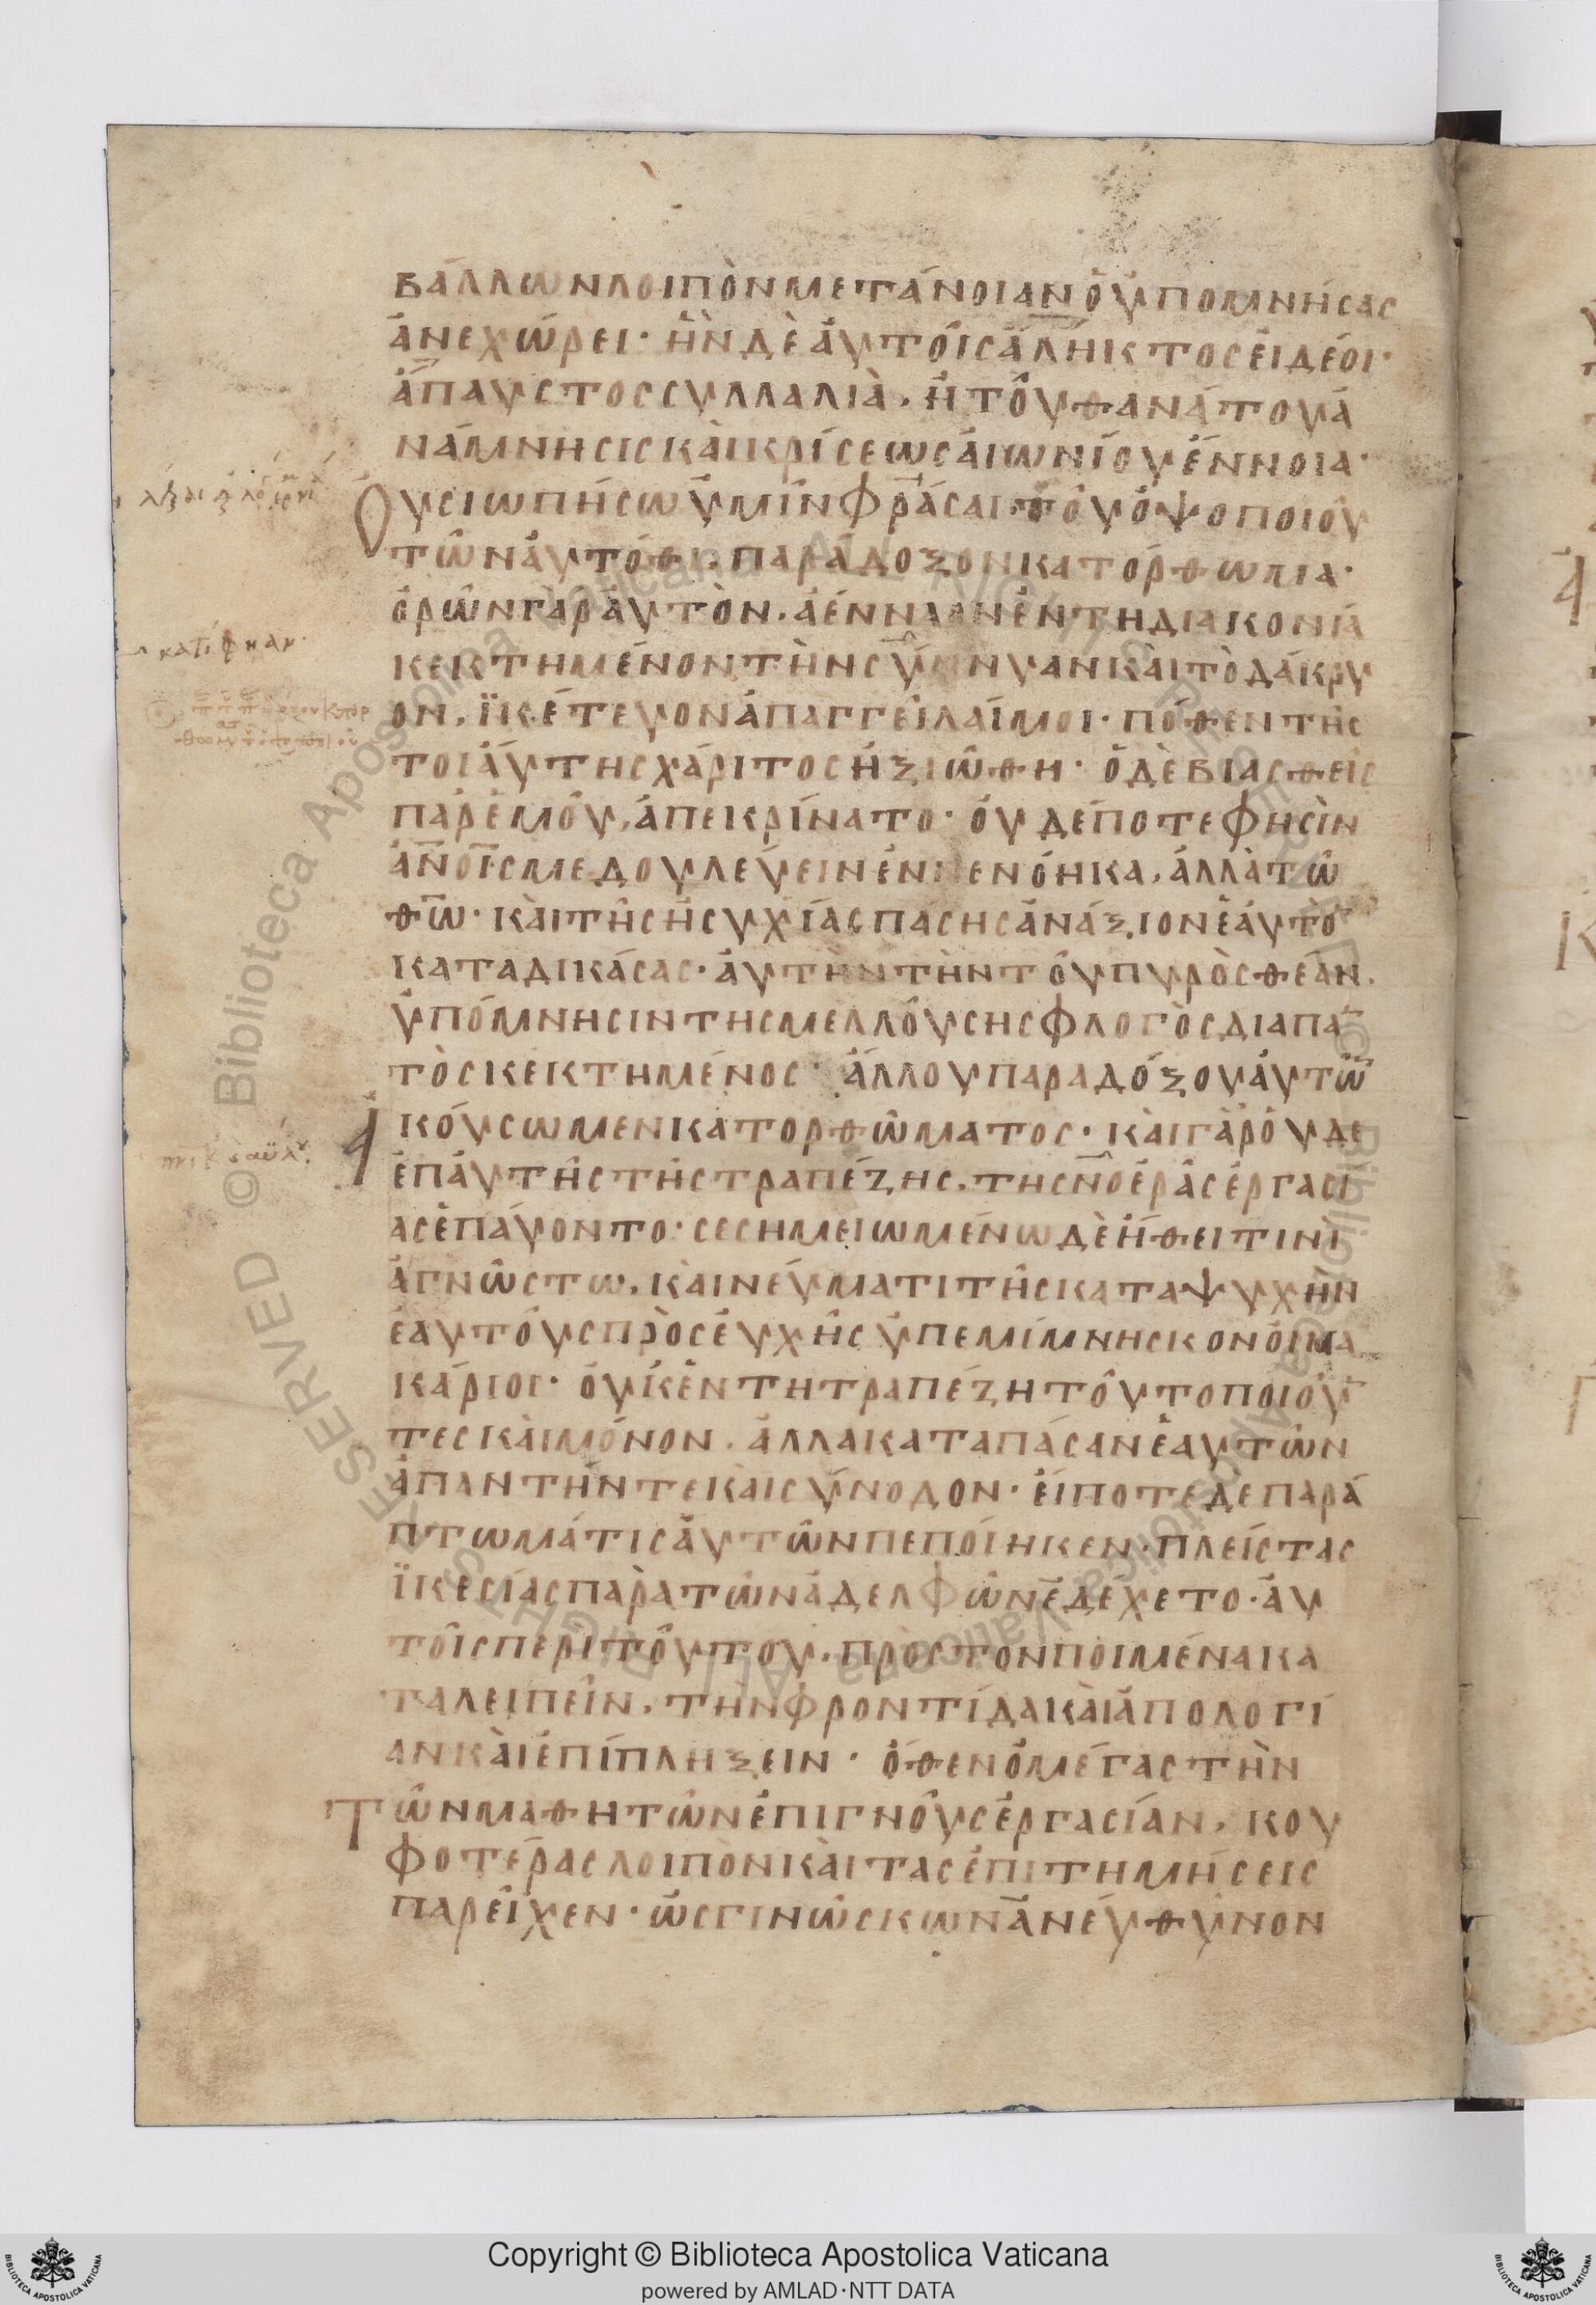 βάλλων λοιπὸν μετάνοιαν ὁ ὑπομνήσας
ἀνεχώρει· ἦν δὲ αὐτοῖς ἄληκτος εἰ δέοι·
ἄπαυστος συλλαλιὰ, ἡ τοῦ θανάτου ἀ
νάμνησις καὶ κρίσεως αἰωνίου ἔννοια·
Οὐ σιωπήσω ὑμῖν φράσαι, τοῦ ὀψοποιοῦ
τῶν αὐτόθι, παράδοξον κατόρθωμα·
ὁρῶν γὰρ αὐτὸν, ἀένναον ἐν τῇ διακονίᾳ
κεκτημένον τὴν σύννοιαν καὶ τὸ δάκρυ
ον, ϊκέτευον ἀπαγγεῖλαί μοι· πόθεν τῆς
τοιαύτης χάριτος ἠξιώθη· ὁ δὲ βιασθεὶς
παρ' ἐμοῦ, ἀπεκρίνατο· οὐδέποτε φησὶν
ἀν̅οι̅ς με δουλεύειν ἐννενόηκα, ἀλλὰ τῷ
θ̅ω̅· καὶ τῆς ἡσυχίας πάσης ἀνάξιον ἑαυτὸ̅
καταδικάσας· αὐτὴν τὴν τοῦ πυρὸς θέαν,
ὑπόμνησιν τῆς μελλούσης φλογὸς διαπα̅
τὸς κεκτημένος· ἄλλου παραδόξου αὐτῶ̅
Ἀκούσωμεν κατορθώματος· καὶ γὰρ οὐδὲ
ἐπ' αὐτῆς τῆς τραπέζης, τῆς νοερᾶς ἐργασί
ας ἐπαύοντο· σεσημειωμένω δὲ ἤθει τινὶ
ἀγνώστω, καὶ νεύματι τῆς κατὰ ψυχὴν
ἑαυτοὺς προσευχῆς ὑπεμίμνησκον οἱ μα
κάριοι· οὐκ ἐν τῇ τραπέζη τοῦτο ποιοῦ̅
τες καὶ μόνον, ἀλλὰ κατὰ πᾶσαν ἑαυτῶν
ἀπαντήν τε καὶ σύνοδον· εἴποτε δὲ παρά
πτωμά τις αὐτῶν πεποίηκεν, πλείστας
ϊκεσίας παρὰ τῶν ἀδελφῶν ἐδέχετο· αὐ
τοῖς περὶ τούτου, πρὸς τὸν ποιμένα κα
ταλειπεῖν, τὴν φροντίδα καὶ ἀπολογί
αν καὶ ἐπίπληξειν· ὅθεν ὁ μέγας τὴν
Τῶν μαθητῶν ἐπιγνοὺς ἐργασίαν, κου
φοτέρας λοιπὸν καὶ τὰς ἐπιτημήσεις
παρεῖχεν· ὡς γινώσκων ἀνεύθυνον
Copyright © Biblioteca Apostolica Vaticana
powered by AMLAD·NTT DATA